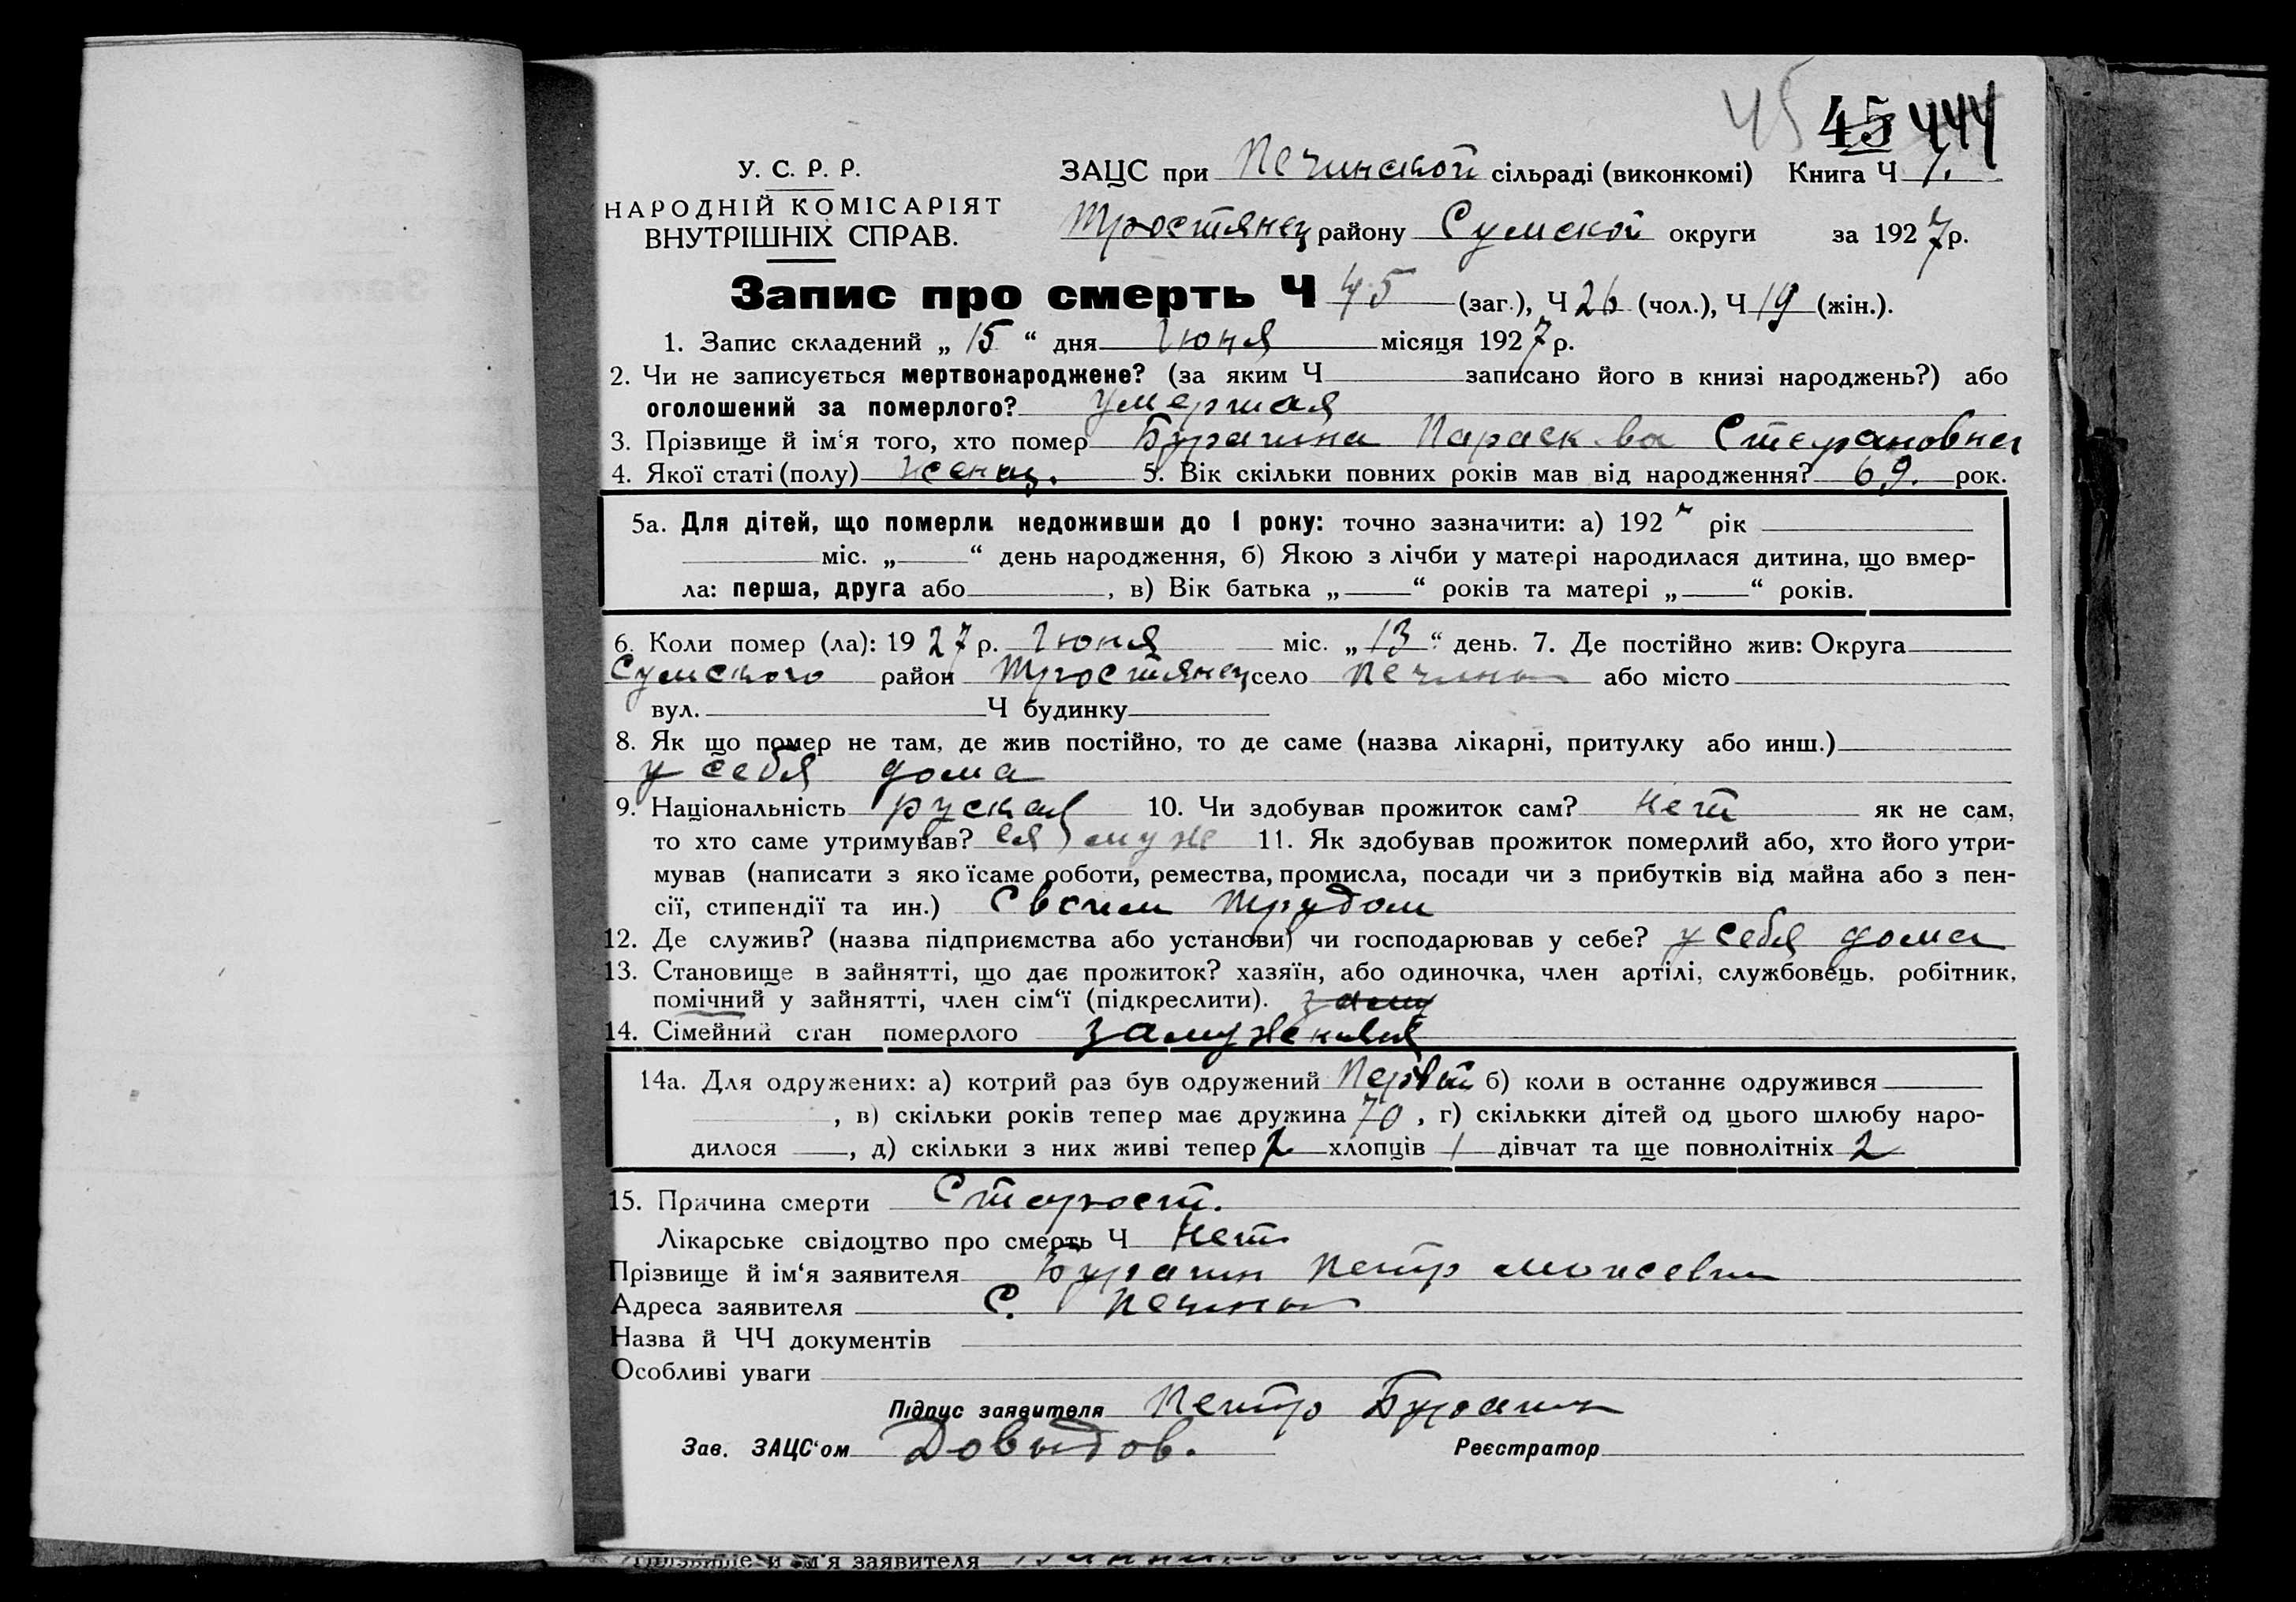 45 45 444
У. С. Р. Р.
НАРОДНІЙ КОМІСАРІЯТ
ВНУТРІШНІХ СПРАВ.
ЗАЦС при Печинской сільраді (виконкомі) Книга Ч 1.
Тростянец району Сумской округи за 1927 р.
Запис про смерть Ч 45 (заг.), Ч 26 (чол.), Ч 19 (жін.).
1. Запис складений „ 15 “ дня Июня місяця 1927 р.
2. Чи не записується мертвонароджене? (за яким Ч записано його в книзі народжень?) або
оголошений за померлого? умершая
3. Прізвище й ім‘я того, хто помер Бурагина Параскева Степановна
4. Якої статі (полу) женщ. 5. Вік скільки повних років мав від народження? 69. рок.
5а. Для дітей, що померли недоживши до 1 року: точно зазначити: а) 192 рік
міс. „ “ день народження, б) Якою з лічби у матері народилася дитина, що вмер-
ла: перша, друга або , в) Вік батька „ “ років та матері „ “ років.
6. Коли помер (ла): 1927 р. Июня міс. „ 13 “ день. 7. Де постійно жив: Округа
Сумского район Тростянец село Печины або місто
вул. Ч будинку
8. Як що помер не там, де жив постійно, то де саме (назва лікарні, притулку або инш.)
у себя дома
9. Національність руская 10. Чи здобував прожиток сам? нет як не сам,
то хто саме утримував? ея муж 11. Як здобував прожиток померлий або, хто його утри-
мував (написати з якоїсаме роботи, ремества, промисла, посади чи з прибутків від майна або з пен-
сії, стипендії та ин.) Своим трудом
12. Де служив? (назва підприємства або установи) чи господарював у себе? у себя дома
13. Становище в зайнятті, що дає прожиток? хазяїн, або одиночка, член артілі, службовець, робітник,
помічний у зайнятті, член сім‘ї (підкреслити). заму
14. Сімейний стан померлого замужняя
14а. Для одружених: а) котрий раз був одружений Первый б) коли в останнє одружився
, в) скільки років тепер має дружина 70 , г) скількки дітей од цього шлюбу наро-
дилося , д) скільки з них живі тепер 2 хлопців 1 дівчат та ще повнолітніх 2
15. Причина смерти Старост.
Лікарське свідоцтво про смерть Ч Нет
Прізвище й ім‘я заявителя Бурагин Петр Моисевич
Адреса заявителя С. Печины
Назва й ЧЧ документів
Особливі уваги
Підпис заявителя Петр Бурагин
Зав. ЗАЦС‘ом Довыдов. Реєстратор
Прізвище й ім‘я заявителя